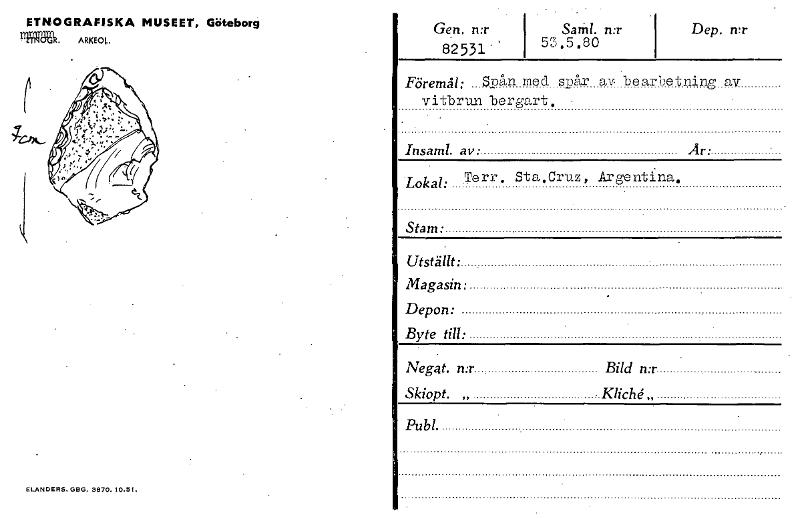 ETNOGRAFISKA MUSEET, Göteborg
ETNOGR. ARKEOL.
7cm
ELANDERS. GBG. 3870. 10.51.
Gen. n:r Saml. n:r Dep. n:r
82531 53.5.80
Föremål: Spån med spår av bearbetning av
vitbrun bergart.
Insaml. av: År:
Lokal: Terr. Sta.Cruz, Argentina.
Stam:
Utställt:
Magasin:
Depon:
Byte till:
Negat. n:r Bild n:r
Skiopt. „ Kliché „
Publ.